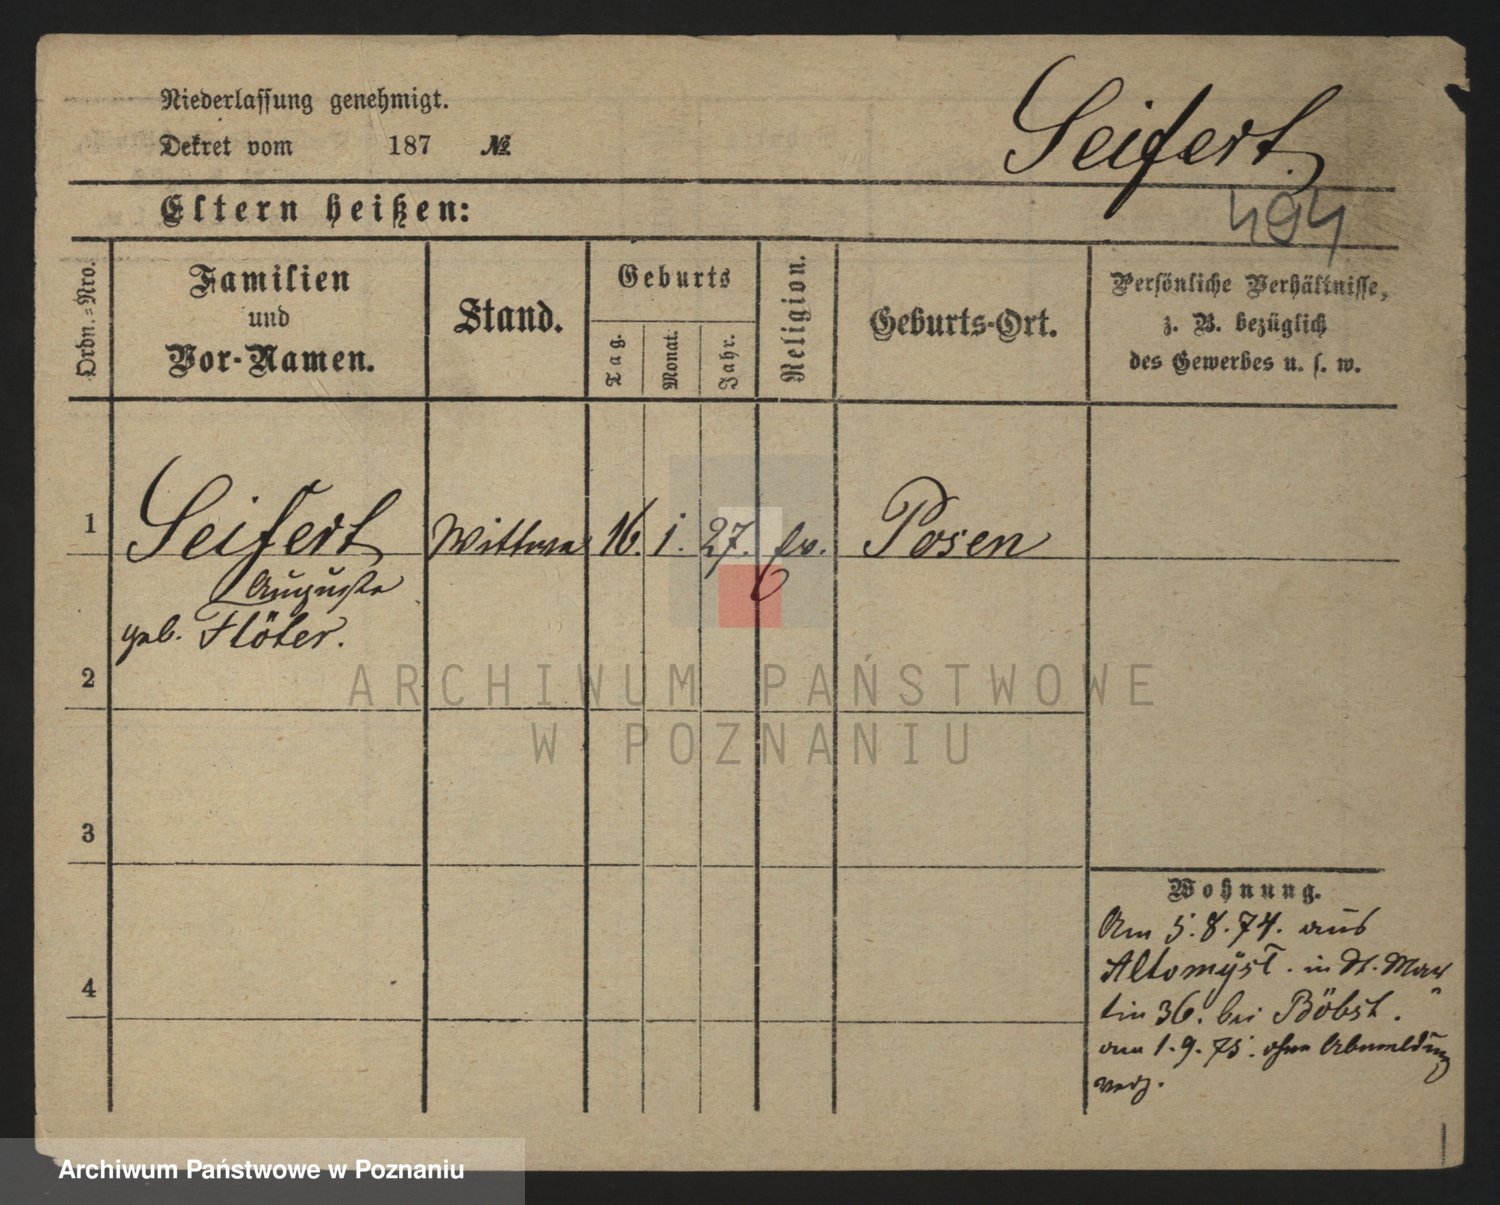 Niederlassung genehmigt.
Dekret vom 187 №
Seifert.
494
Eltern heißen:
Ordn.-Nro.
Familien
und
Vor-Namen.
Stand.
Geburts
Tag.
Monat.
Jahr.
Religion.
Geburts-Ort.
Persönliche Verhältnisse,
z. B. bezüglich
des Gewerbes u. s. w.
1 Seifert Wittwe 16. 1. 27. ev. Posen
Auguste
geb. Flöter.
2
3
4
Wohnung.
Am 5.8.74. aus
Altomysl. in St. Mar
tin 36. bei Böbst.
am 1.9.75. ohne Abmeldung
verz.
ARCHIWUM PAŃSTWOWE
W POZNANIU
Archiwum Państwowe w Poznaniu